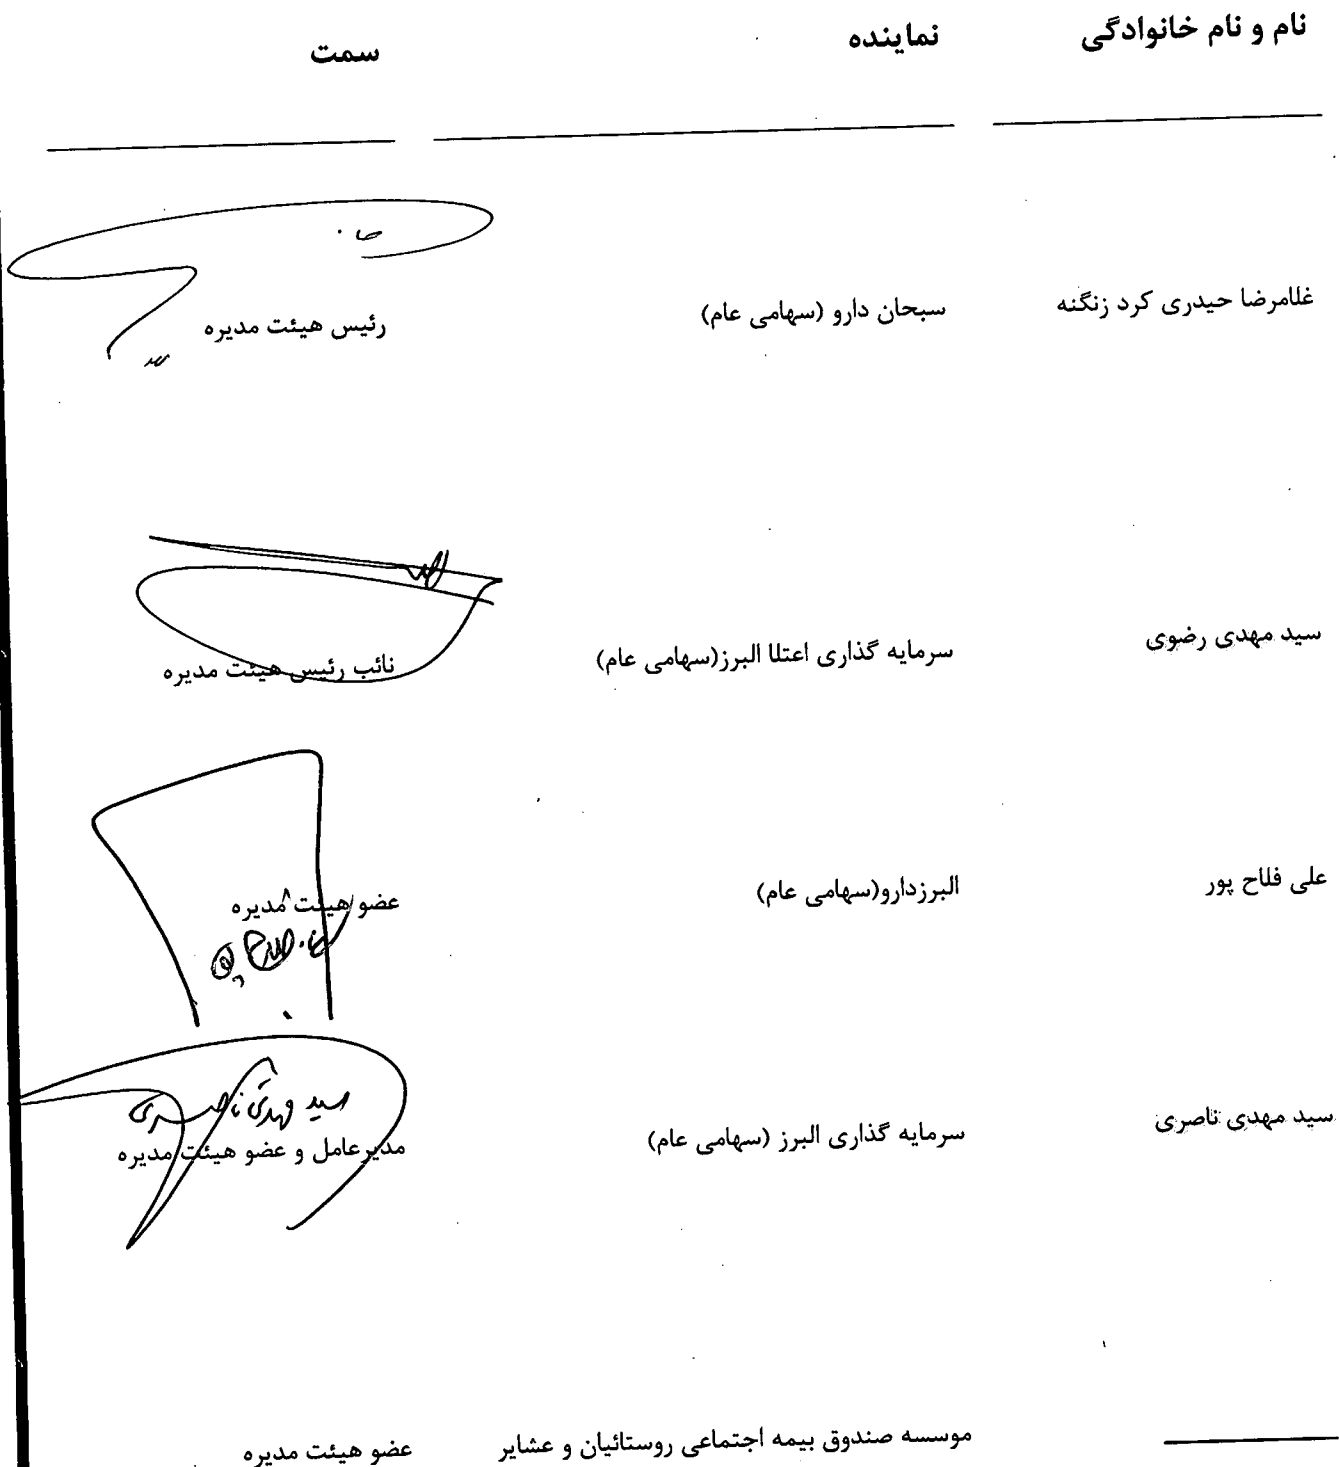 نام و نام خانوادگی نماینده سمت
غلامرضا حیدری کرد زنگنه سبحان دارو (سهامی عام) رئیس هیئت مدیره
سید مهدی رضوی سرمایه گذاری اعتلا البرز(سهامی عام) نائب رئیس هیئت مدیره
علی فلاح پور البرزدارو(سهامی عام) عضو هیئت مدیره
سید مهدی ناصری
سید مهدی ناصری سرمایه گذاری البرز (سهامی عام) مدیرعامل و عضو هیئت مدیره
موسسه صندوق بیمه اجتماعی روستائیان و عشایر عضو هیئت مدیره